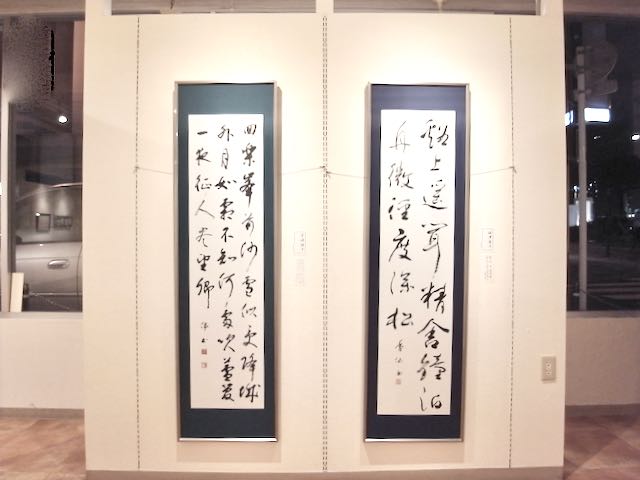 回樂峯前沙雪似受降城
外月如霜不知何處吹蘆管
一夜征人尽望鄉
谿上遥聞精舎鐘泊
舟微徑度深松